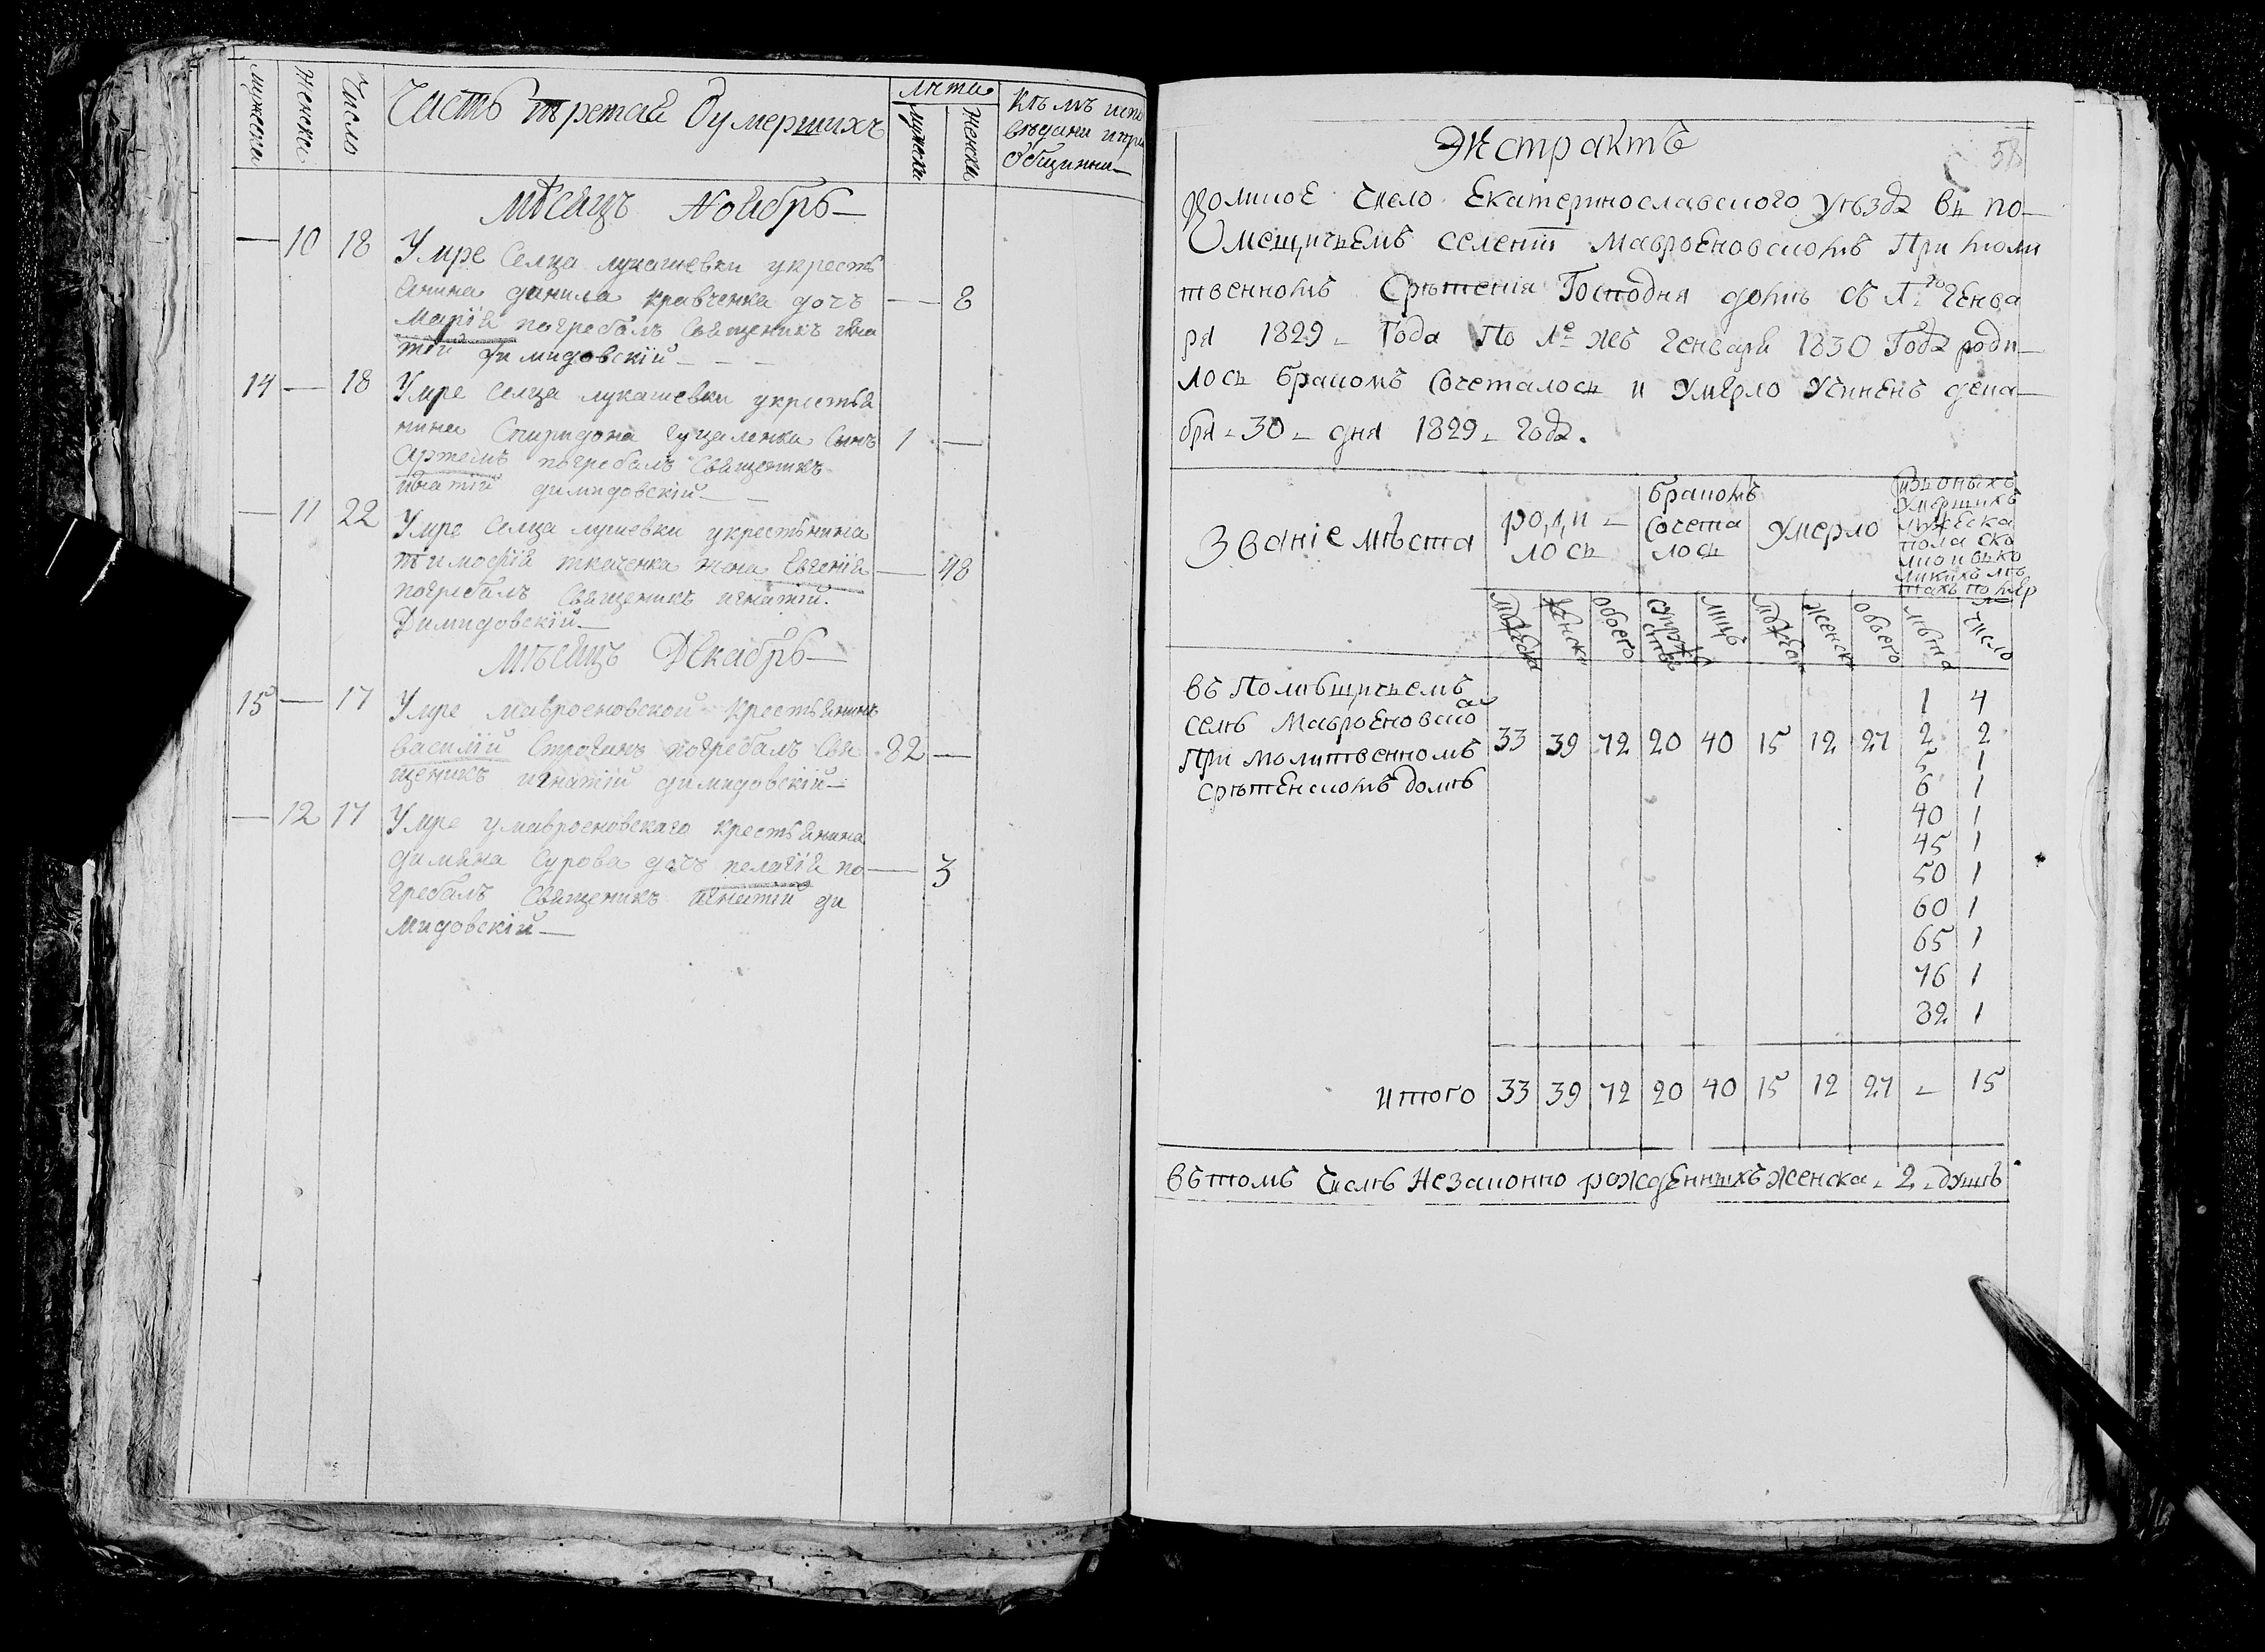 мужеска
женска
Число
Часть третая Оумершихъ
лѣта
мужеска
женска
Кѣмъ испо
вѣдани и прі
общенни
Мѣсяцъ Ноябрь
— 10 18 Умре Селца лукашевки укресть
янина данила кравченка дочъ — 8
Марія погребалъ Священикъ игна
тій Димидовскій
14 — 18 Умре селца лукашевки укрестья
нина Спиридона гуцаленка сынъ 1 —
Артемъ погребалъ Священикъ
игнатій димидовскій
— 11 22 Умре Селца лушевки укрестьянина
тимофія ткаченка жена Евгенія — 48
погребалъ Священикъ игнатій
Димидовскій
Мѣсяцъ Декабрь
15 — 17 Умре мавроеновской крестьянинъ
василій Строгинъ погребалъ Свя 82 —
щеникъ игнатій димидовскій
— 12 17 Умре умавроеновскаго крестьянина
димяна Сурова дочъ пелагія по — 3
гребалъ Священикъ игнатій ди
мидовскій
Экстрактъ
58
Коликое число Екатеринославского уѣзда въ по
мещичьемъ селеніи Мавроеновскомъ При моли
твенномъ Срѣтенія Господня домѣ съ 1го Генва
ря 1829 Года По 1е жъ Генваря 1830 Года роди
лось бракомъ Сочеталось и умерло Учиненъ дека
бря 30 дня 1829 года.
Званіе мѣста
роди
лось
бракомъ
Сочета
лось
Умерло
Изъ оныхъ
Умершихъ
мужеска
пола ско
лко и въ ко
ликихъ лѣ
тахъ помер
ло
мужеска
женска
обоего
супруже
ствъ
лицъ
мужеска
женска
обоего
лѣта
число
въ Помѣщичьемъ 1 4
селѣ Мавроеновска 33 39 72 20 40 15 12 27 2 2
При Молитвенномъ 5 1
Срѣтенскомъ домѣ 6 1
40 1
45 1
50 1
60 1
65 1
76 1
82 1
Итого 33 39 72 20 40 15 12 27 - 15
Въ томъ числѣ Незаконно рожденныхъ женска 2 душѣ